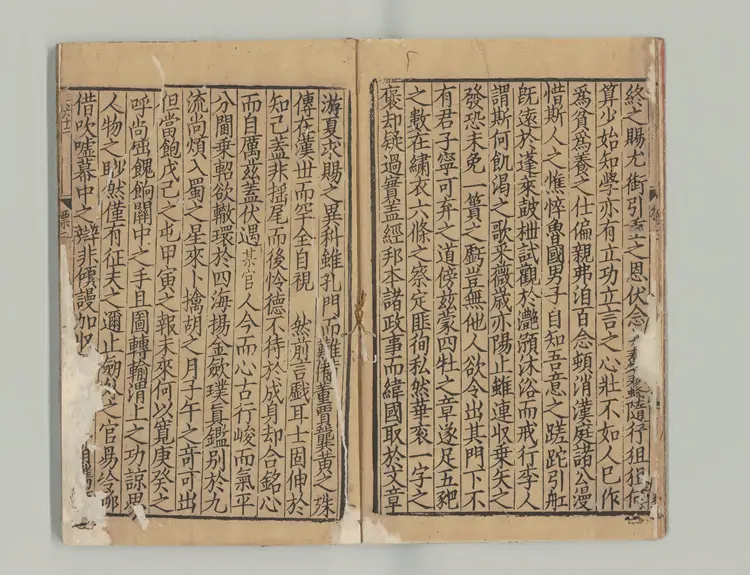 終之賜尤銜引之恩伏念隨行狙狙
算少始知學亦有立功立言之心壯不如人巳作
爲貧爲養之仕偏親弗洎百念頓消漢庭諸公漫
惜斯人之憔悴魯國男子自知吾意之蹉跎引舡
旣遠於蓬萊皷枻試觀於灔澦沐浴而戒行李人
謂斯何飢渴之歌采薇歲亦陽止雖連收乗矢之
發恐未免一簣之虧豈無他人欲令出其門下不
有君子寧可弃之道傍兹蒙四牡之章遂足五豝
之數在繡衣六條之察定匪徇私然華衮一字之
襃却疑過實蓋經邦本諸政事而緯國取於文章
游夏求賜之異科雖孔門而難備董賈龔黃之殊
傳在漢丗而罕全自視 然前言戲耳士固伸於
知己蓋非揺尾而後怜德不待於成身却合銘心
而自厲兹蓋伏遇某官人今而心古行峻而氣平
分閫乗軺欲轍環於四海揚金歛璞眞鑑别於九
流尚煩入蜀之星來卜擒胡之月子午之竒可出
但當飽戊己之屯甲寅之報未來何以寛庚癸之
呼尚餽餉關中之手且圖轉輸渭上之功諒思
人物之眇然僅有征夫之邇止之官易冷
借吹嘘幕中之辯非謾加收